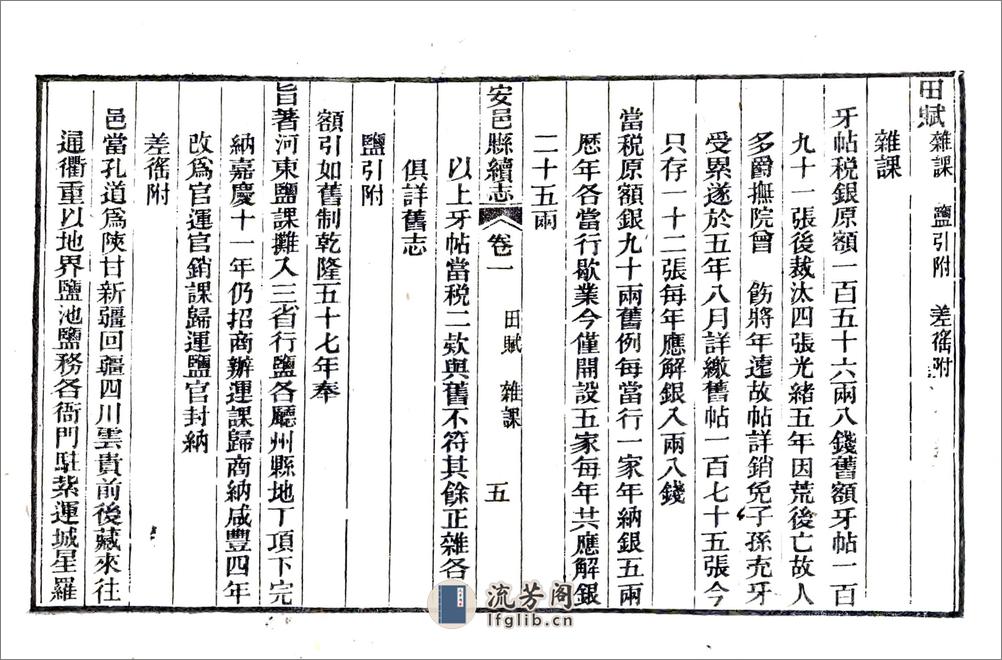 田賦 雜課 鹽引附 差徭附
雜課
牙帖税銀原額一百五十六兩八錢舊額牙帖一百
九十一張後裁汰四張光緒五年因荒後亡故人
多爵撫院曾 飭將年遠故帖詳銷免子孫充牙
受累遂於五年八月詳繳舊帖一百七十五張今
只存一十二張每年應解銀入兩八錢
當税原額銀九十兩舊例每當行一家年納銀五兩
歷年各當行歇業今僅開設五家每年共應解銀
二十五兩
安邑縣續志 卷一 田賦 雜課 五
以上牙帖當税二欵與舊不符其餘正雜各
俱詳舊志
鹽引附
額引如舊制乾隆五十七年奉
旨著河東鹽課攤入三省行鹽各廳州縣地丁項下完
納嘉慶十一年仍招商辦運課歸商納咸豐四年
改爲官運官銷課歸運鹽官封納
差徭附
邑當孔道爲陝甘新疆回疆四川雲貴前後藏來往
通衢重以地界鹽池鹽務各衙門駐紮運城星羅
流芳阁
lfglib.cn